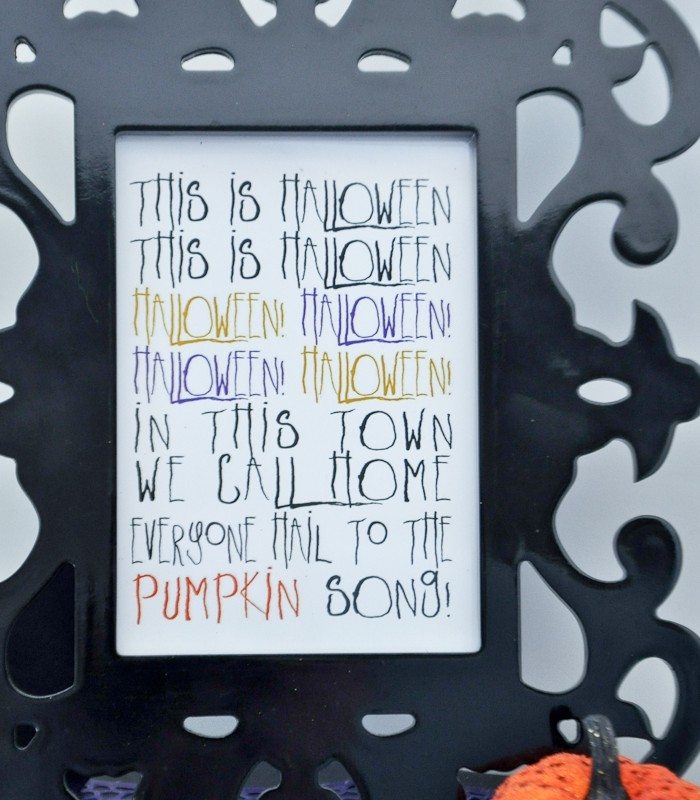 THIS IS HALLOWEEN
THIS IS HALLOWEEN
HALLOWEEN! HALLOWEEN!
HALLOWEEN! HALLOWEEN!
IN THIS TOWN
WE CALL HOME
EVERYONE HAIL TO THE
PUMPKIN SONG!